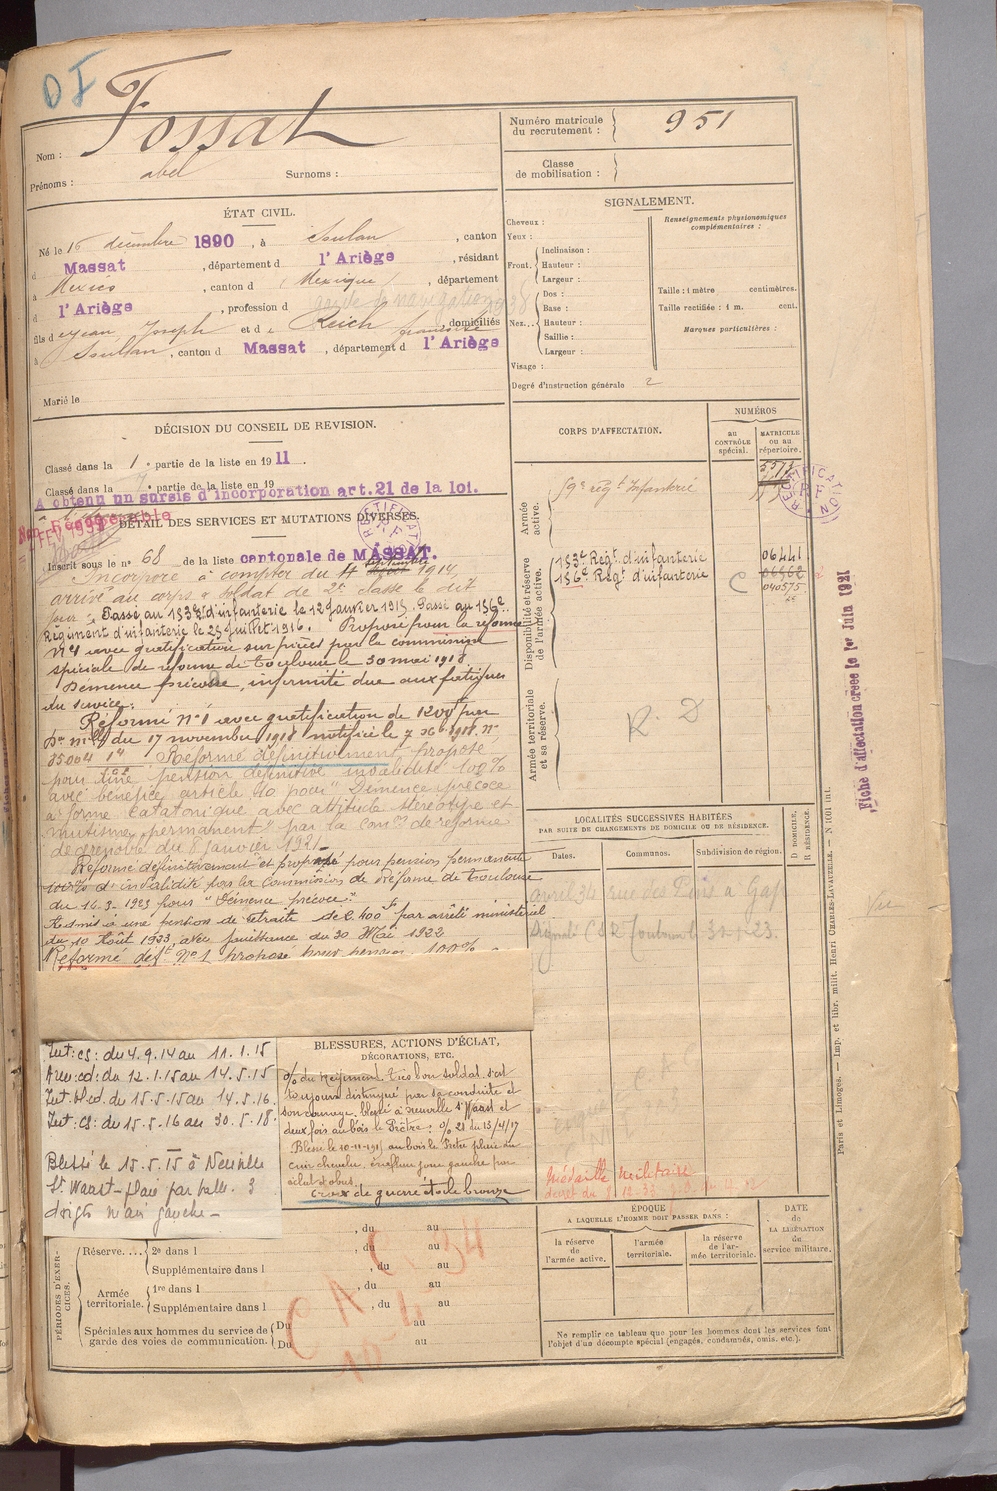 OI
Nom : Fossat
Prénoms : abel Surnoms :
Numéro matricule du recrutement : 951
Classe de mobilisation :
ÉTAT CIVIL.
Né le 16 décembre 1890, à Soulan, canton
d Massat, département d l'Ariège, résidant
à Mexico, canton d (Mexique), département
d l'Ariège, profession d
fils d e Jean Joseph et d e Reich françoise domiciliés
à Soullan, canton d Massat, département d l'Ariège
Marié le
SIGNALEMENT.
Cheveux :
Yeux :
Front. Inclinaison :
Hauteur :
Largeur :
Nez.. Dos :
Base :
Hauteur :
Saillie :
Largeur :
Visage :
Renseignements physionomiques complémentaires :
Taille : 1 mètre centimètres.
Taille rectifiée : 1 m. cent.
Marques particulières :
Degré d'instruction générale 2
DÉCISION DU CONSEIL DE REVISION.
Classé dans la 1e partie de la liste en 1911.
Classé dans la e partie de la liste en 19
A obtenu un sursis d'incorporation art. 21 de la loi.
DÉTAIL DES SERVICES ET MUTATIONS DIVERSES.
RECTIFICATION R.F.
Inscrit sous le n° 68 de la liste cantonale de MASSAT.
Incorporé à compter du 4 septembre 1914,
arrivé au corps & soldat de 2e classe le dit
jour. Passé au 153e d'infanterie le 12 janvier 1915. Passé au 156e
Régiment d'infanterie le 25 juillet 1916. Proposé pour la réforme
N°1 avec gratification sur pièces par la commission
spéciale de réforme de Toulouse le 30 mai 1918
Démence précoce, infirmité due aux fatigues
du service.
Réformé n°1 avec gratification de 1200f par
Don mlle du 17 novembre 1918 notifiée le 7 Xbre 1918. n°
35004 1a Réformé définitivement proposé
pour une pension définitive invalidité 100%
avec bénéfice article 10 pour "Démence précoce
à forme catatonique avec attitude stéréotype et
mutisme permanent" par la con de réforme
de grenoble du 8 janvier 1921
Réformé définitivement et proposé pour pension permanente
100% d'invalidité par la Commission de Réforme de Toulouse
du 16.3-1923 pour "Démence précoce".
Admis à une pension de retraite de 2.400f par arrêté ministériel
du 10 Août 1923, avec jouissance du 30 Mai 1922
Réformé déft N°1 proposé pour pension 100%
CORPS D'AFFECTATION.
NUMÉROS
au CONTRÔLE spécial.
MATRICULE ou au répertoire.
Armée active.
59e régt Infanterie
RECTIFICATION R.F.
Disponibilité et réserve de l'armée active.
153e Régt d'infanterie 06441
156e Régt d'infanterie C 06562
040575
Armée territoriale et sa réserve.
R. D
Fiche d'affectation créée le 1er Juin 1921
LOCALITÉS SUCCESSIVES HABITÉES
PAR SUITE DE CHANGEMENTS DE DOMICILE OU DE RÉSIDENCE.
D DOMICILE, R RÉSIDENCE.
Dates. Communes. Subdivision de région.
avril 34 rue des Pins à Gap
Vu
Int: cs: du 4.9.14 au 11.1.15
Arm: cd: du 12.1.15 au 14.5.15
Int: bled. du 15.5.15 au 14.5.16.
Int: cs: du 15.5.16 au 30.5.18.
Blessé le 15.5.15 à Neuville
St Waast - plaie par balle. 3
doigts main gauche -
BLESSURES, ACTIONS D'ÉCLAT, DÉCORATIONS, ETC.
O/ du Régiment. Très bon soldat s'est
toujours distingué par sa conduite et
son courage, blessé à Neuville St Waast et
deux fois au bois le Prêtre: O/ 21 du 15/4/17
Blessé le 10-11-1915 au bois le Prêtre plaie du
cuir chevelu, éraflure joue gauche par
éclat d'obus.
Croix de guerre étoile bronze
Médaille militaire
PÉRIODES D'EXERCICES.
Réserve.... 2e dans l , du au
Supplémentaire dans l , du au
Armée territoriale. 1re dans l , du au
Supplémentaire dans l , du au
Spéciales aux hommes du service de garde des voies de communication. Du au
Du au
ÉPOQUE
A LAQUELLE L'HOMME DOIT PASSER DANS :
la réserve de l'armée active.
l'armée territoriale.
la réserve de l'armée territoriale.
DATE de LA LIBÉRATION du service militaire.
Ne remplir ce tableau que pour les hommes dont les services font
l'objet d'un décompte spécial (engagés, condamnés, omis, etc.).
Paris et Limoges. — Imp. et libr. milit. Henri CHARLES-LAVAUZELLE. —